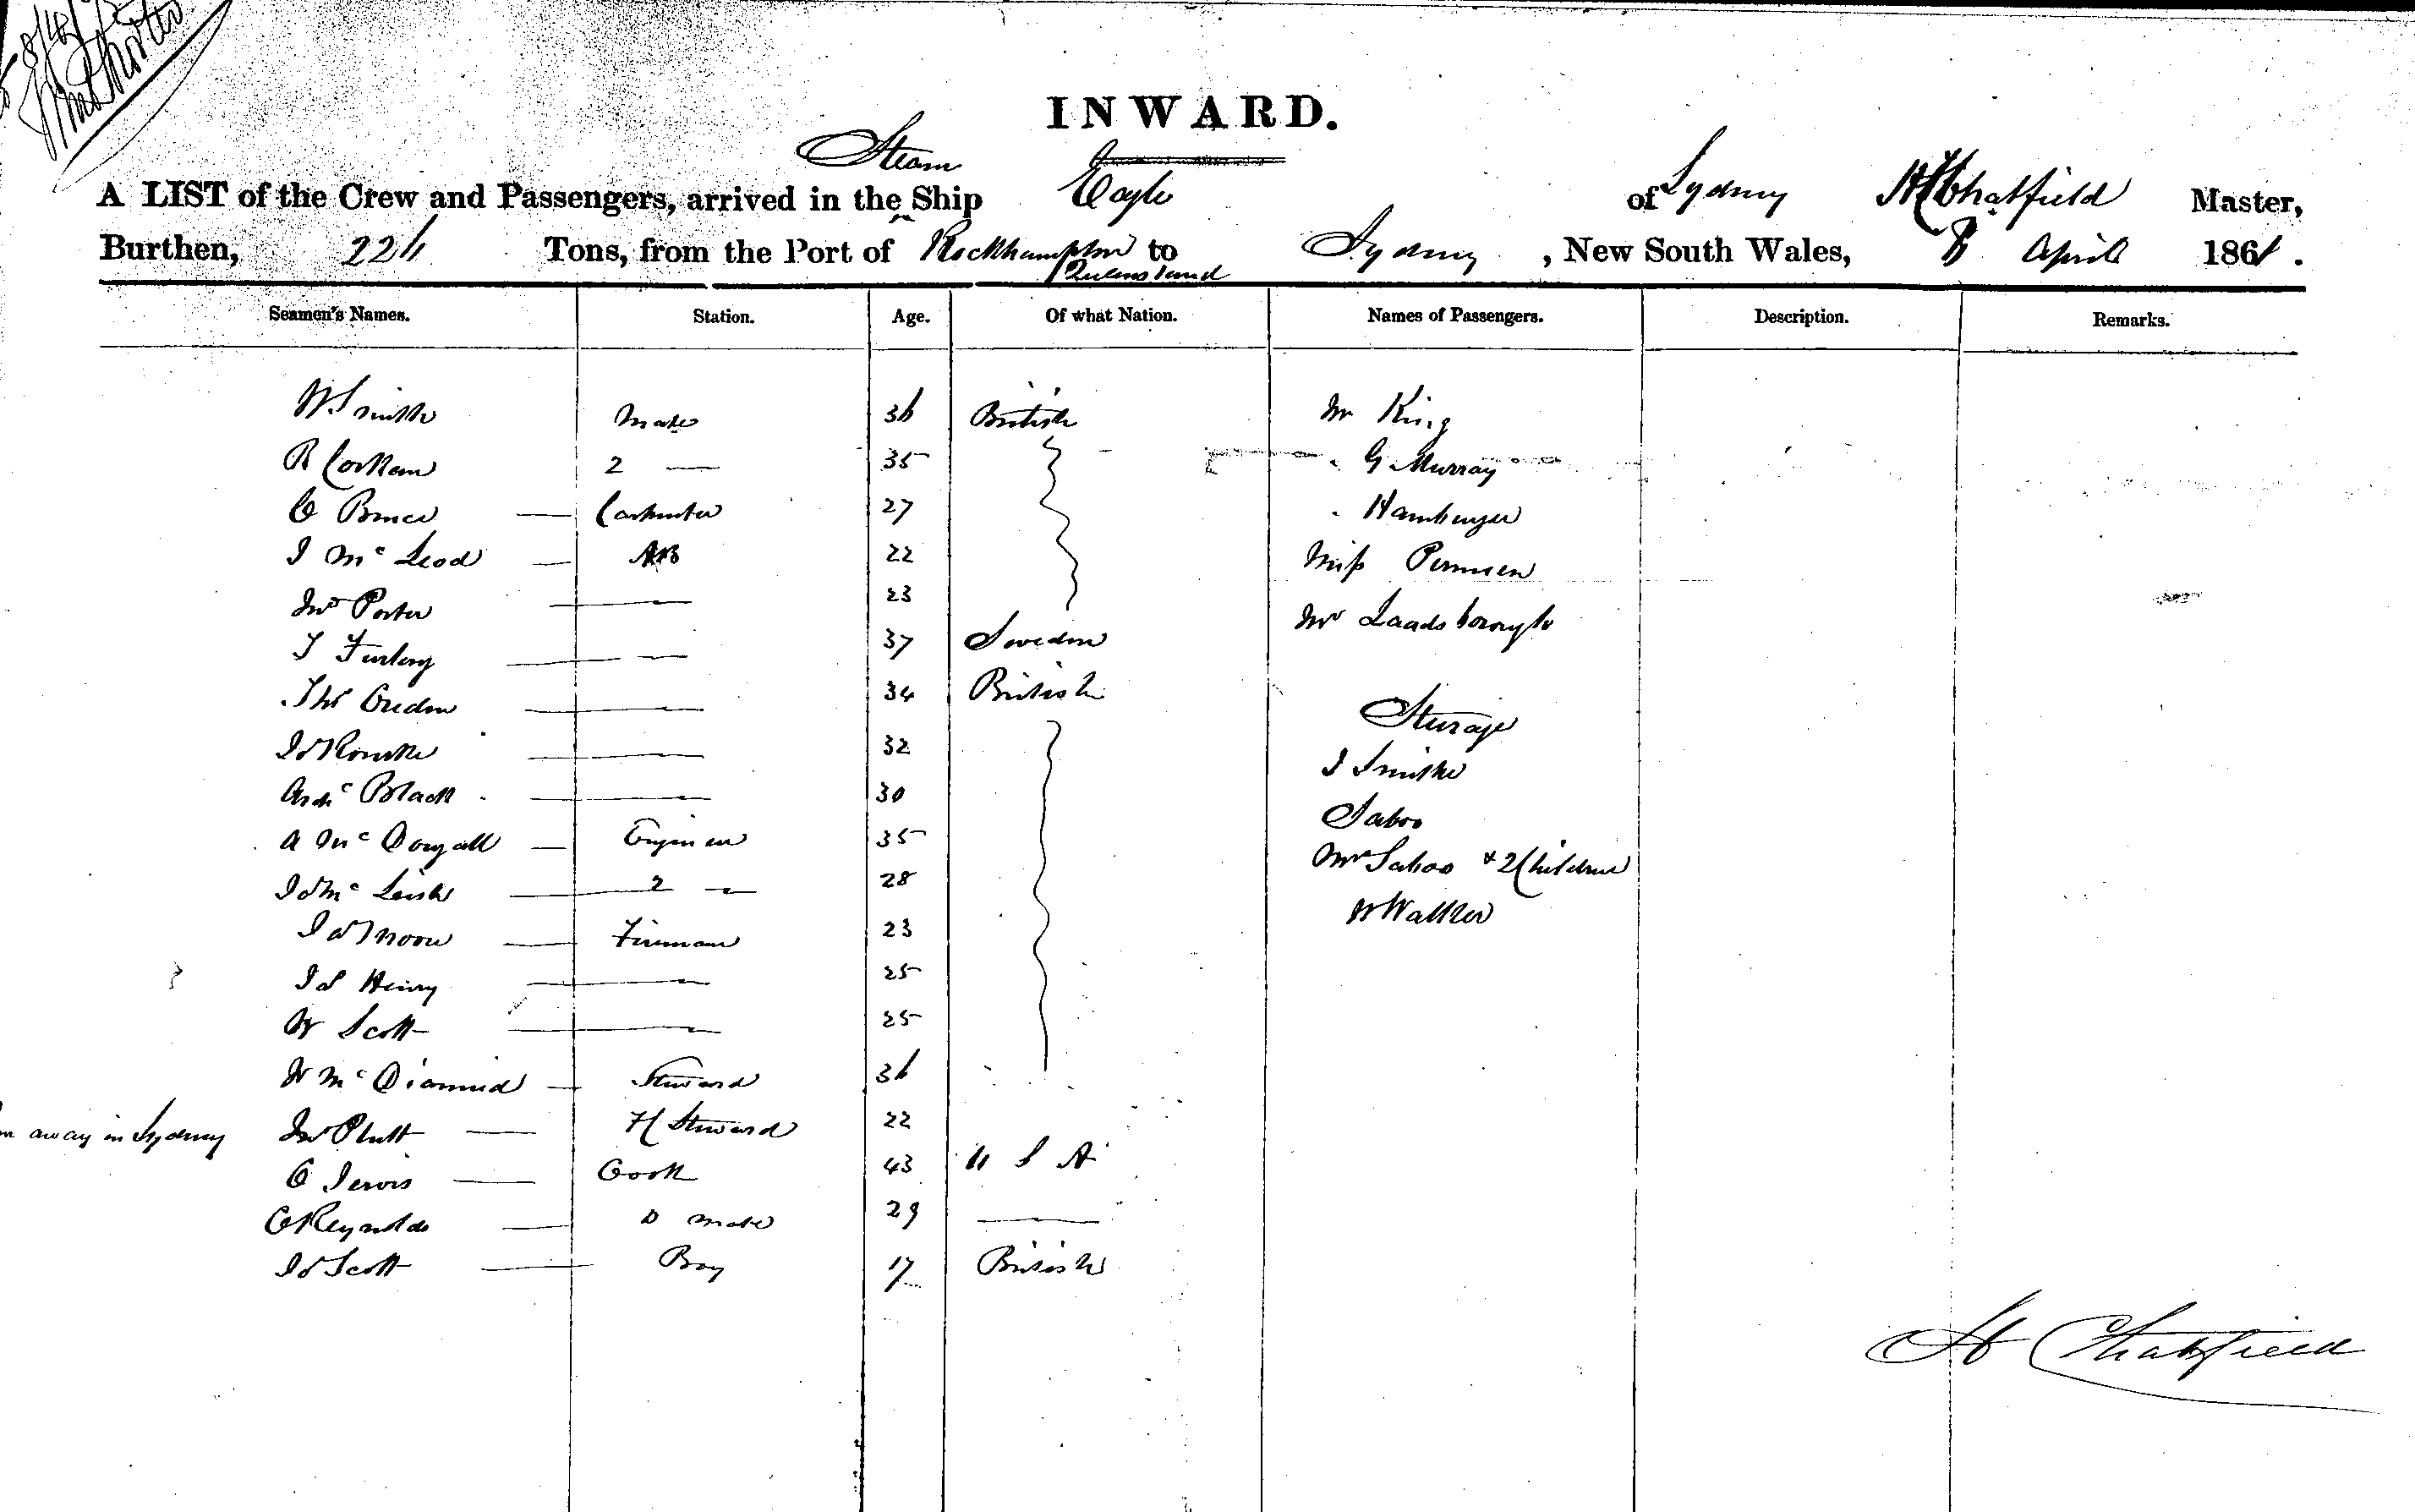 INWARD.
A LIST of the Crew and Passengers, arrived in the Steam Ship Eagle of Sydney H Chatfield Master,
Burthen, 226 Tons, from the Port of Rockhampton Queensland to Sydney, New South Wales, 8 April 1861.
Seamen's Names. Station. Age. Of what Nation. Names of Passengers. Description. Remarks.
W Smith Mate 36 British Mr King
R 2 — 35 " G Murray
C Bruce — Carpenter 27 " Hamburger
J McLeod — AB 22 Miss
Jno Porter — 23 Mr Landsborough
T Furlong — 37 Sweden
Thos — 34 British Steerage
Jas Rourke — 32 J Smith
Archd Black — 30 Saboo
A McDougall — Engineer 35 Mrs Saboo & 2 Children
Jas McLeish — 2 — 28 W Walker
Jas Moore — Fireman 23
Jas Henry — 25
W Scott — 25
W McDiarmid — Steward 36
away in Sydney Jno Plutt — F Steward 22
C Jervis — Cook 43 U S A
C Reynolds — D mate 29 —
Jas Scott — Boy 17 British
H Chatfield